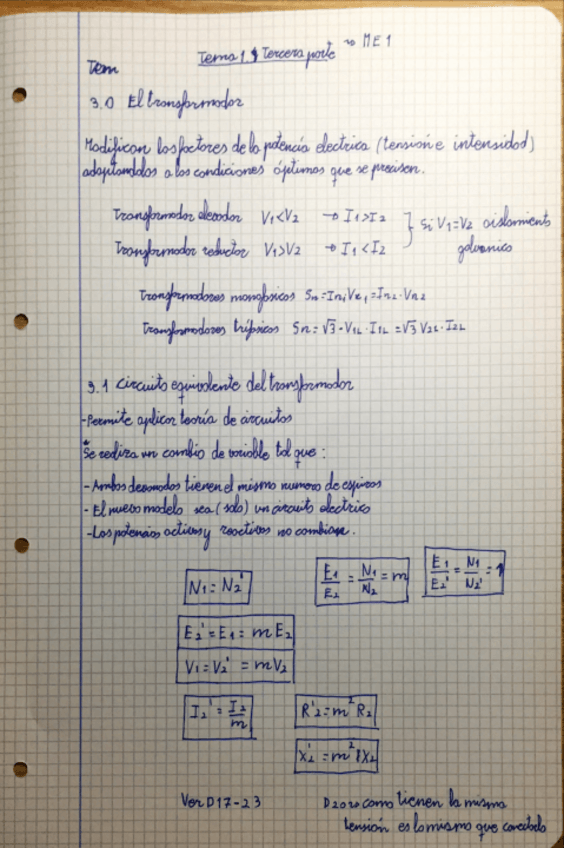 Tema 1. Tercera parte → ME1
Tem
3.0 El transformador
Modifican los factores de la potencia electrica (tensión e intensidad)
adaptandolos a las condiciones óptimas que se precisen.
Transformador elevador V1<V2 → I1>I2 } Si V1=V2 aislamiento
Transformador reductor V1>V2 → I1<I2 galvanico
Transformadores monofasicos Sn=In1Vn1=In2·Vn2
Transformadores trifasicos Sn=√3·V1L·I1L=√3 V2L·I2L
3.1 Circuito equivalente del transformador
-Permite aplicar teoría de circuitos
*Se realiza un cambio de variable tal que:
-Ambos devanados tienen el mismo numero de espiras
-El nuevo modelo sea (solo) un circuito electrico
-Las potencias activas y reactivas no cambian.
N1=N2' E1/E2=N1/N2=m E1/E2'=N1/N2'=1
E2'=E1=mE2
V1=V2'=mV2
I2'=I2/m R'2=m²R2
X2'=m²X2
Ver D17-23 D20 como tienen la misma
tensión es lo mismo que conectarlo